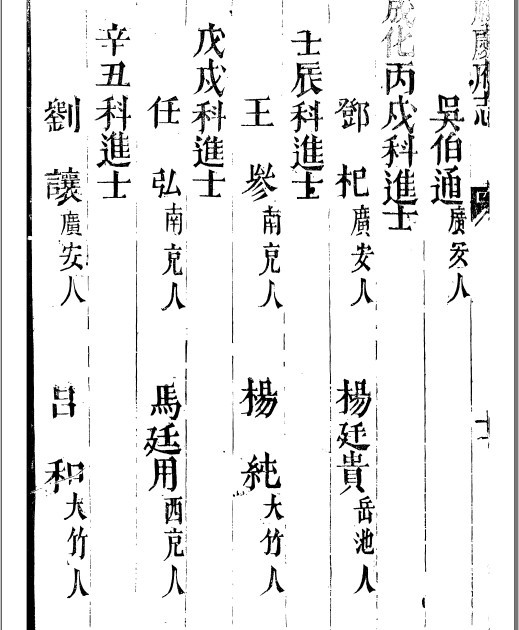 慶府志
吳伯通廣安人
成化丙戌科進士
鄧杞廣安人 楊廷貴岳池人
壬辰科進士
王參南充人 楊純大竹人
戊戌科進士
任弘南充人 馬廷用西充人
辛丑科進士
劉讓廣安人 呂和大竹人